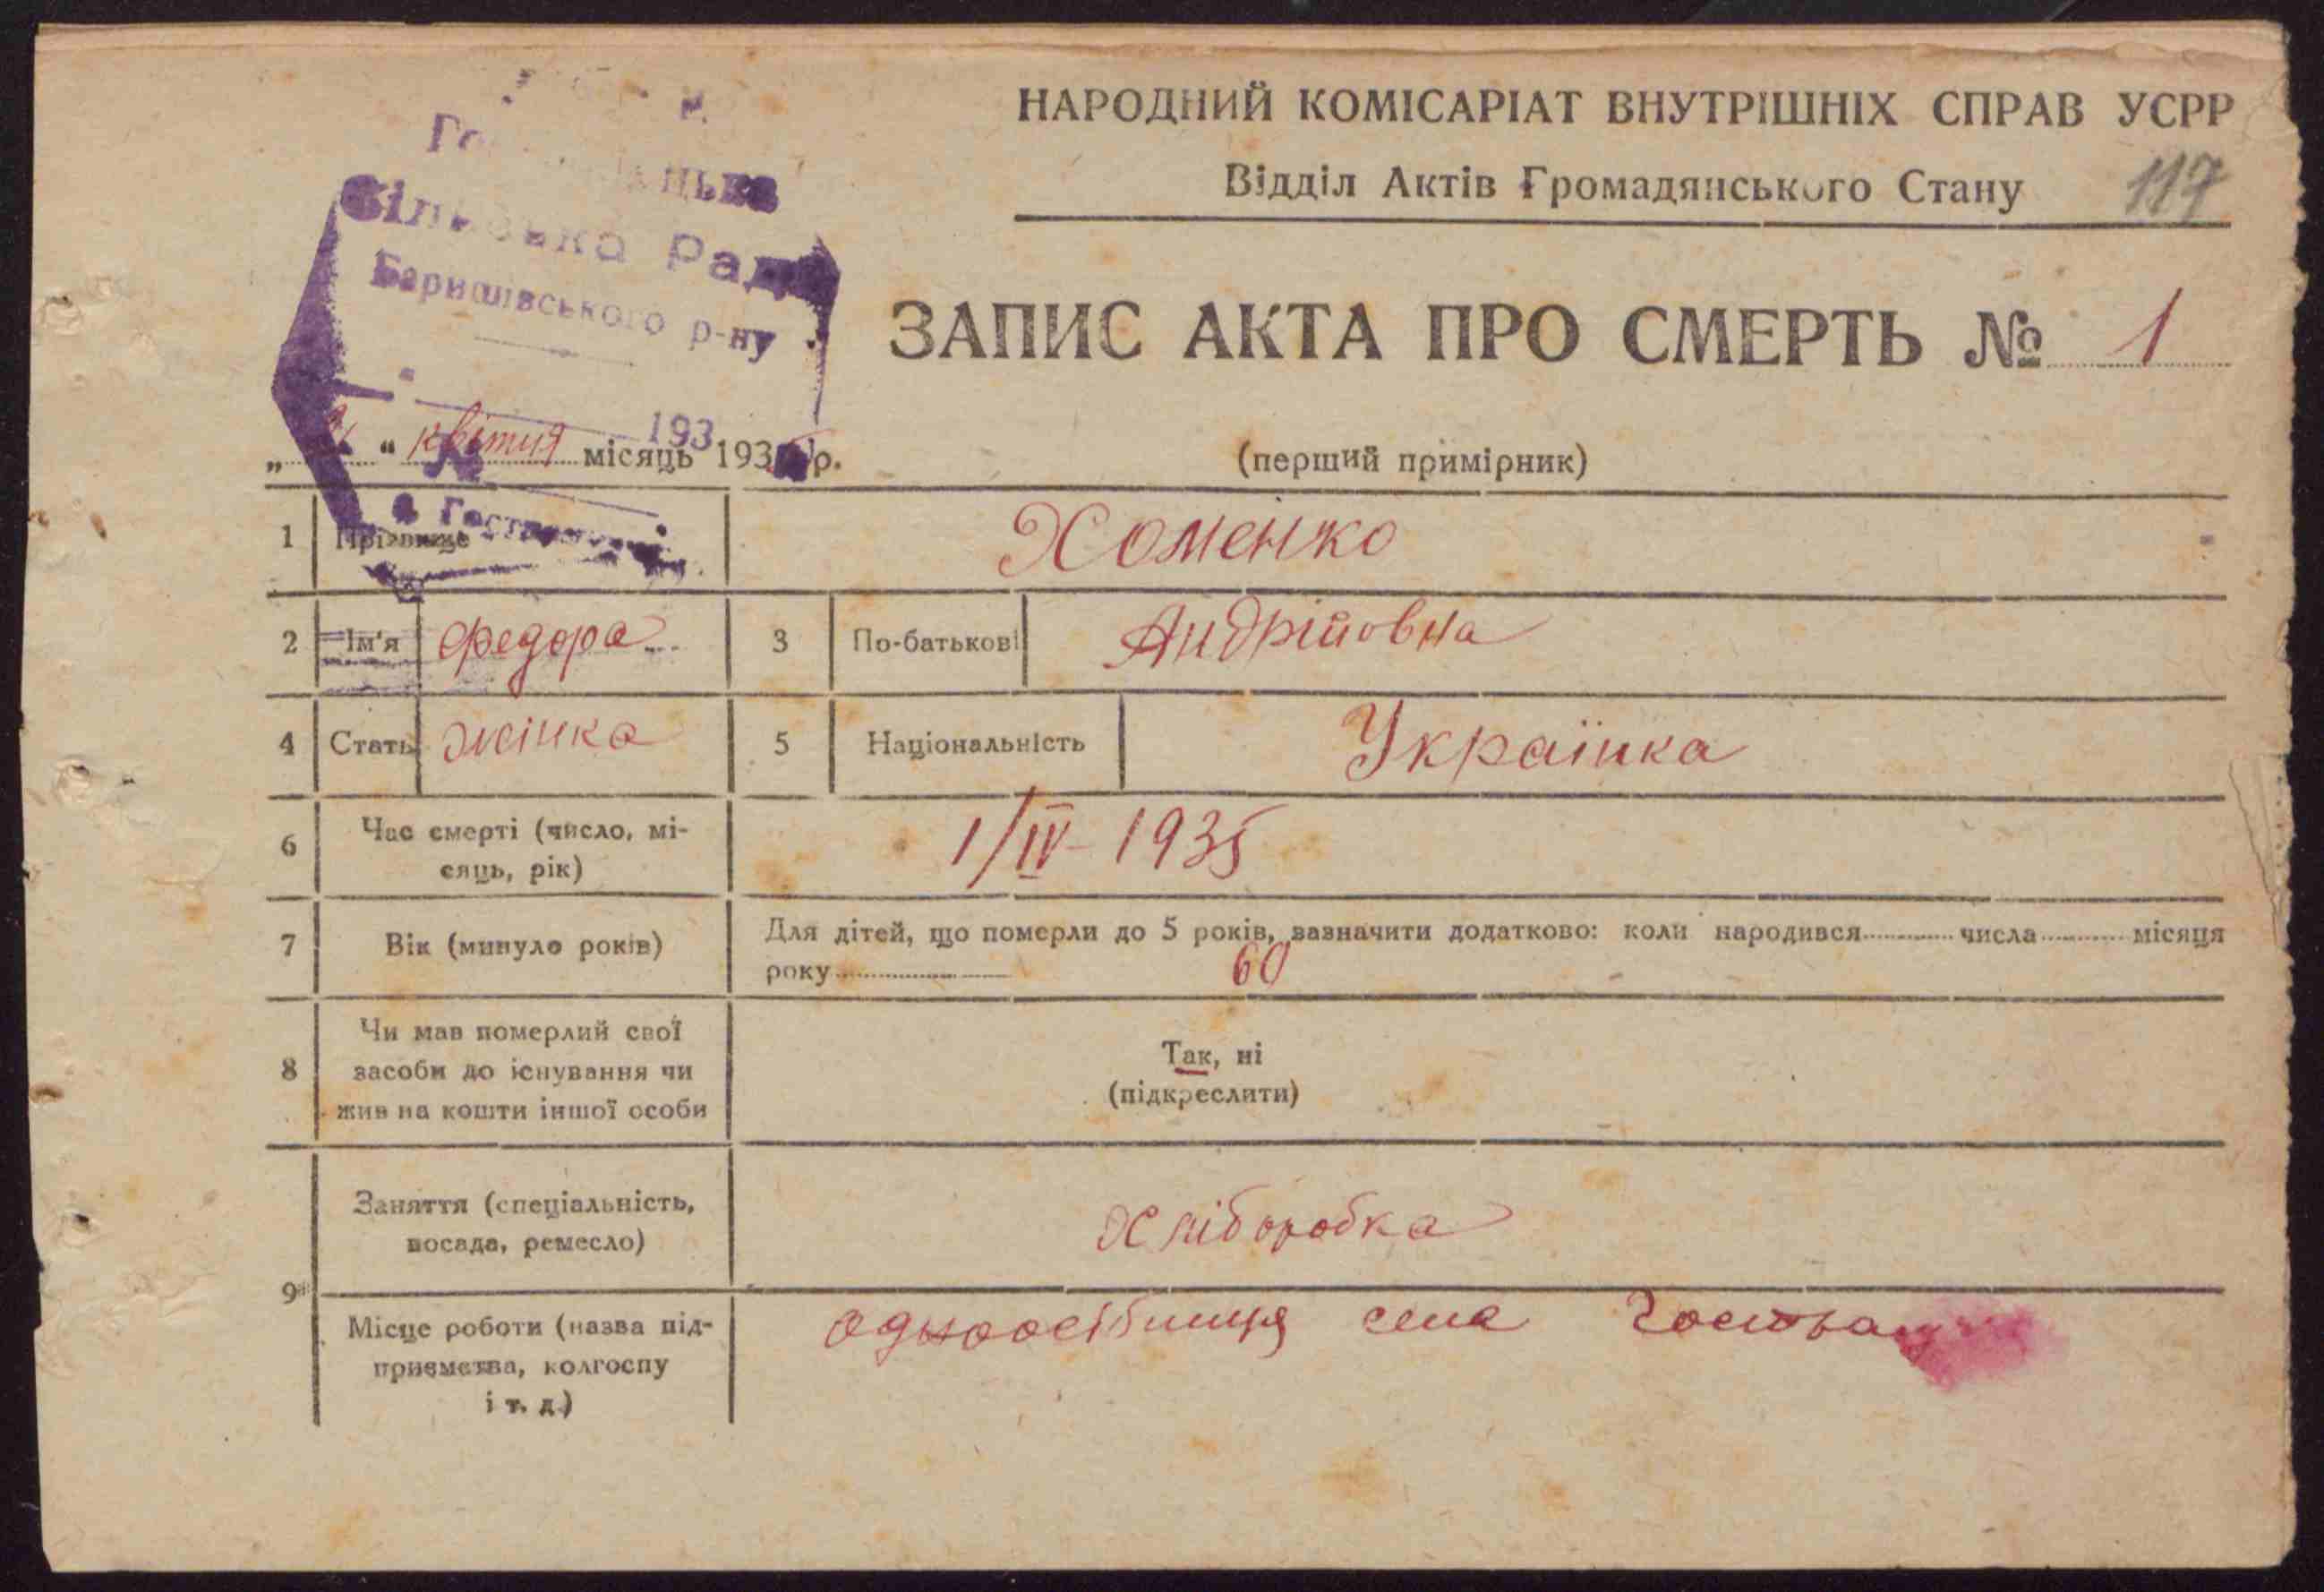 НАРОДНИЙ КОМІСАРІАТ ВНУТРІШНІХ СПРАВ УСРР
Відділ Актів Громадянського Стану 117
Рада
р-ну
193
ЗАПИС АКТА ПРО СМЕРТЬ № 1
„ “ квітня місяць 1935 р.
(перший примірник)
1 Прізвище Хоменко
2 Ім'я Федора 3 По-батькові Андрійовна
4 Стать жінка 5 Національність Українка
6 Час смерті (число, мі-
сяць, рік) 1/IV - 1935
7 Вік (минуло років) Для дітей, що померли до 5 років, зазначити додатково: коли народився числа місяця
року 60
8 Чи мав померлий свої
засоби до існування чи
жив на кошти іншої особи
Так, ні
(підкреслити)
9 Заняття (спеціальність,
посада, ремесло) Хліборобка
Місце роботи (назва під-
приємства, колгоспу
і т. д.) одноосібниця села